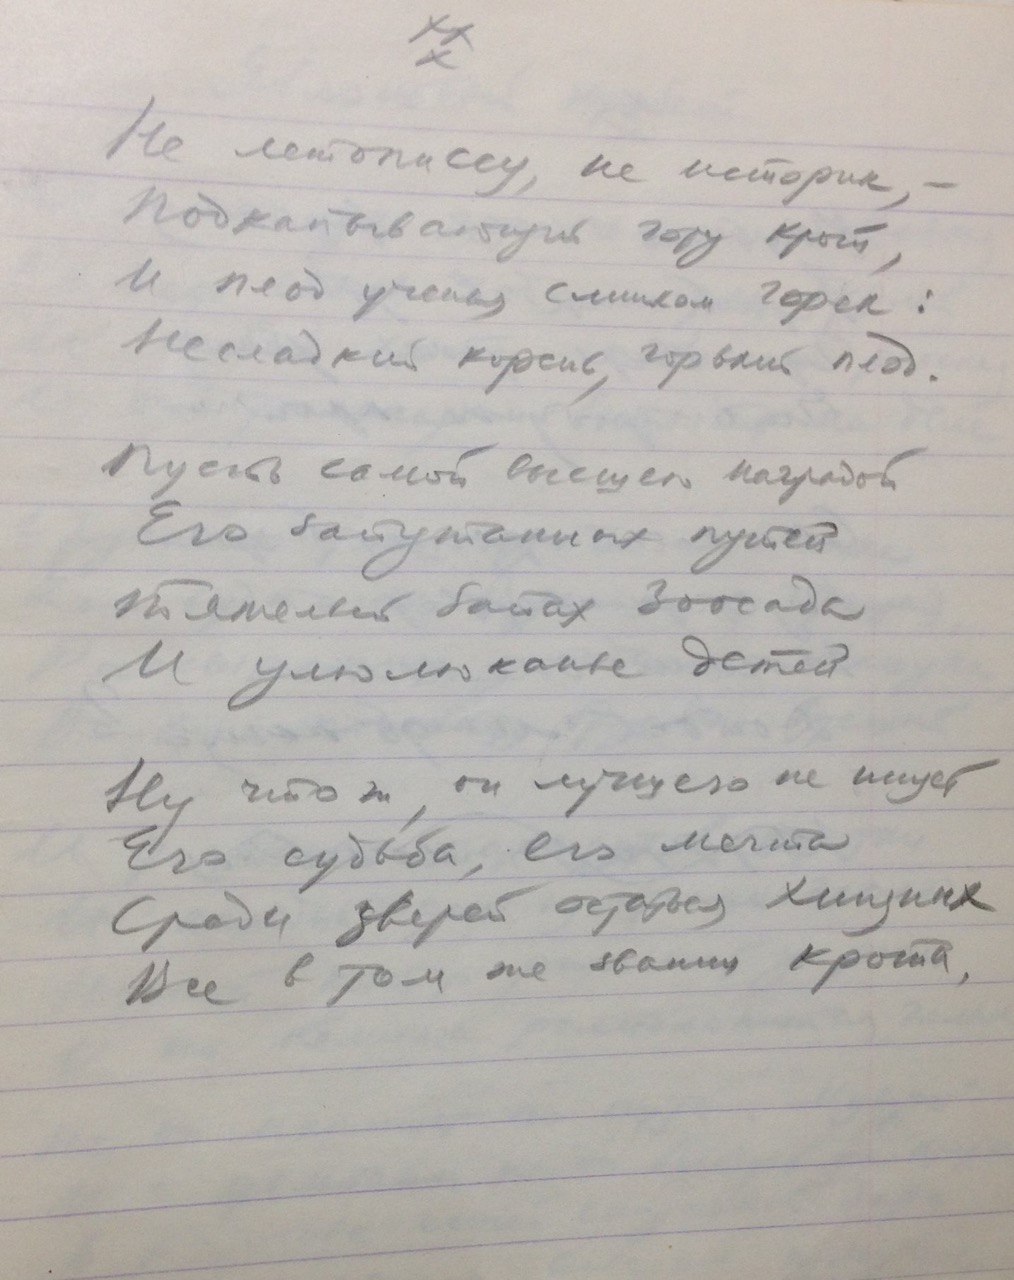 ХХ
Х
Не летописец, не историк, –
Подкапывающий гору крот,
И плод ученья слишком горек:
Несладкий корень, горький плод.
Пусть самой высшею наградой
Его запутанных путей
Тяжелый запах Зоосада
И улюлюканье детей
Ну что ж, он лучшего не ищет
Его судьба, его мечта
Среди зверей остаться хищных
Все в том же звании крота,